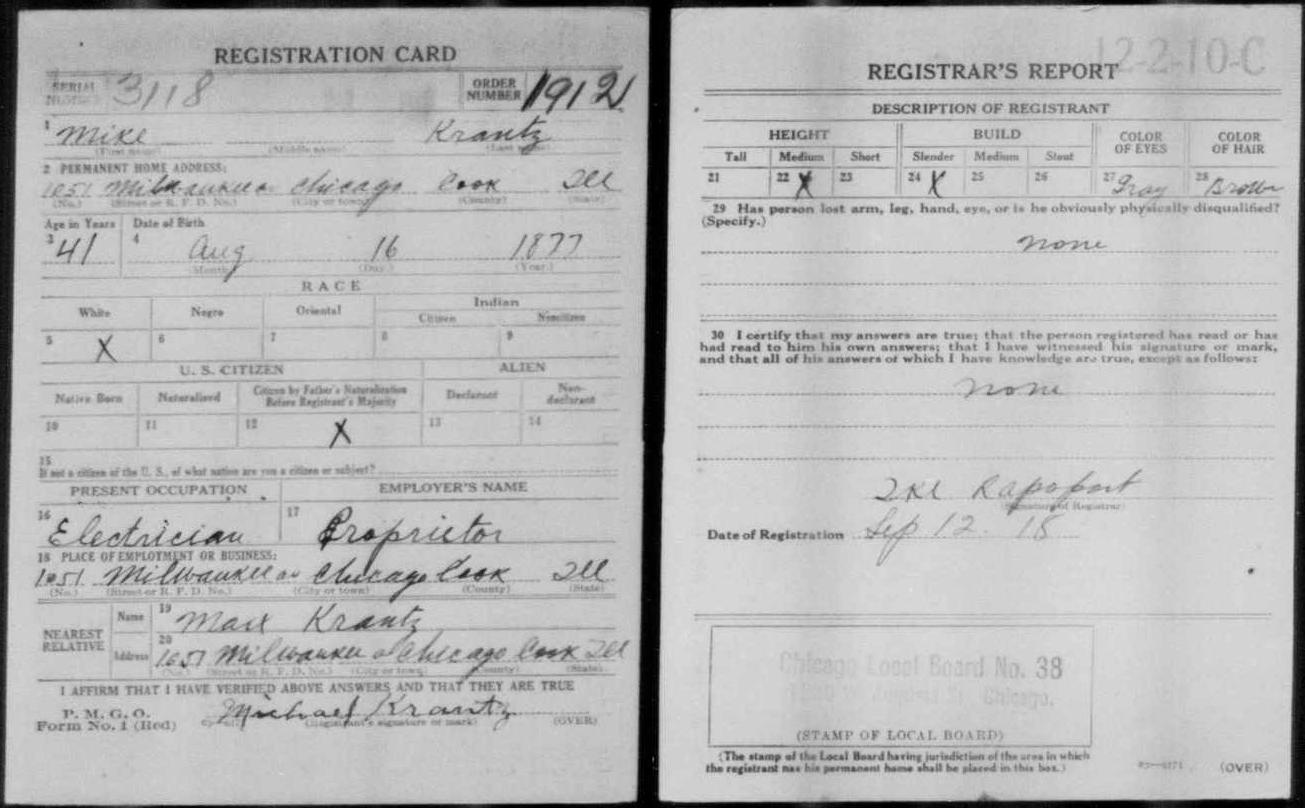 REGISTRATION CARD
SERIAL NUMBER 3118 ORDER NUMBER 1912
1 Mike Krantz
(First name) (Middle name) (Last name)
2 PERMANENT HOME ADDRESS:
1051 Milwaukee av Chicago Cook Ill
(No.) (Street or R. F. D. No.) (City or town) (County) (State)
Age in Years Date of Birth
3 41 4 Aug 16 1877
(Month) (Day.) (Year.)
RACE
White Negro Oriental Indian
Citizen Noncitizen
5 X 6 7 8 9
U. S. CITIZEN ALIEN
Native Born Naturalized Citizen by Father's Naturalization Before Registrant's Majority Declarant Non-declarant
10 11 12 X 13 14
15
If not a citizen of the U. S., of what nation are you a citizen or subject?
PRESENT OCCUPATION EMPLOYER'S NAME
16 Electrician 17 Proprietor
18 PLACE OF EMPLOYMENT OR BUSINESS:
1051 Milwaukee av Chicago Cook Ill
(No.) (Street or R. F. D. No.) (City or town) (County) (State)
NEAREST RELATIVE Name 19 Max Krantz
Address 20 1051 Milwaukee av Chicago Cook Ill
(No.) (Street or R. F. D. No.) (City or town) (County) (State)
I AFFIRM THAT I HAVE VERIFIED ABOVE ANSWERS AND THAT THEY ARE TRUE
P. M. G. O.
Form No. 1 (Red) Michael Krantz
(Registrant's signature or mark) (OVER)
12-2-10-C
REGISTRAR'S REPORT
DESCRIPTION OF REGISTRANT
HEIGHT BUILD COLOR OF EYES COLOR OF HAIR
Tall Medium Short Slender Medium Stout
21 22 X 23 24 X 25 26 27 Gray 28 Brown
29 Has person lost arm, leg, hand, eye, or is he obviously physically disqualified?
(Specify.)
none
30 I certify that my answers are true; that the person registered has read or has
had read to him his own answers; that I have witnessed his signature or mark,
and that all of his answers of which I have knowledge are true, except as follows:
none
Ike Rapoport
(Signature of Registrar)
Date of Registration Sep 12. 18
Chicago Local Board No. 38
Chicago.
(STAMP OF LOCAL BOARD)
(The stamp of the Local Board having jurisdiction of the area in which
the registrant has his permanent home shall be placed in this box.)
(OVER)